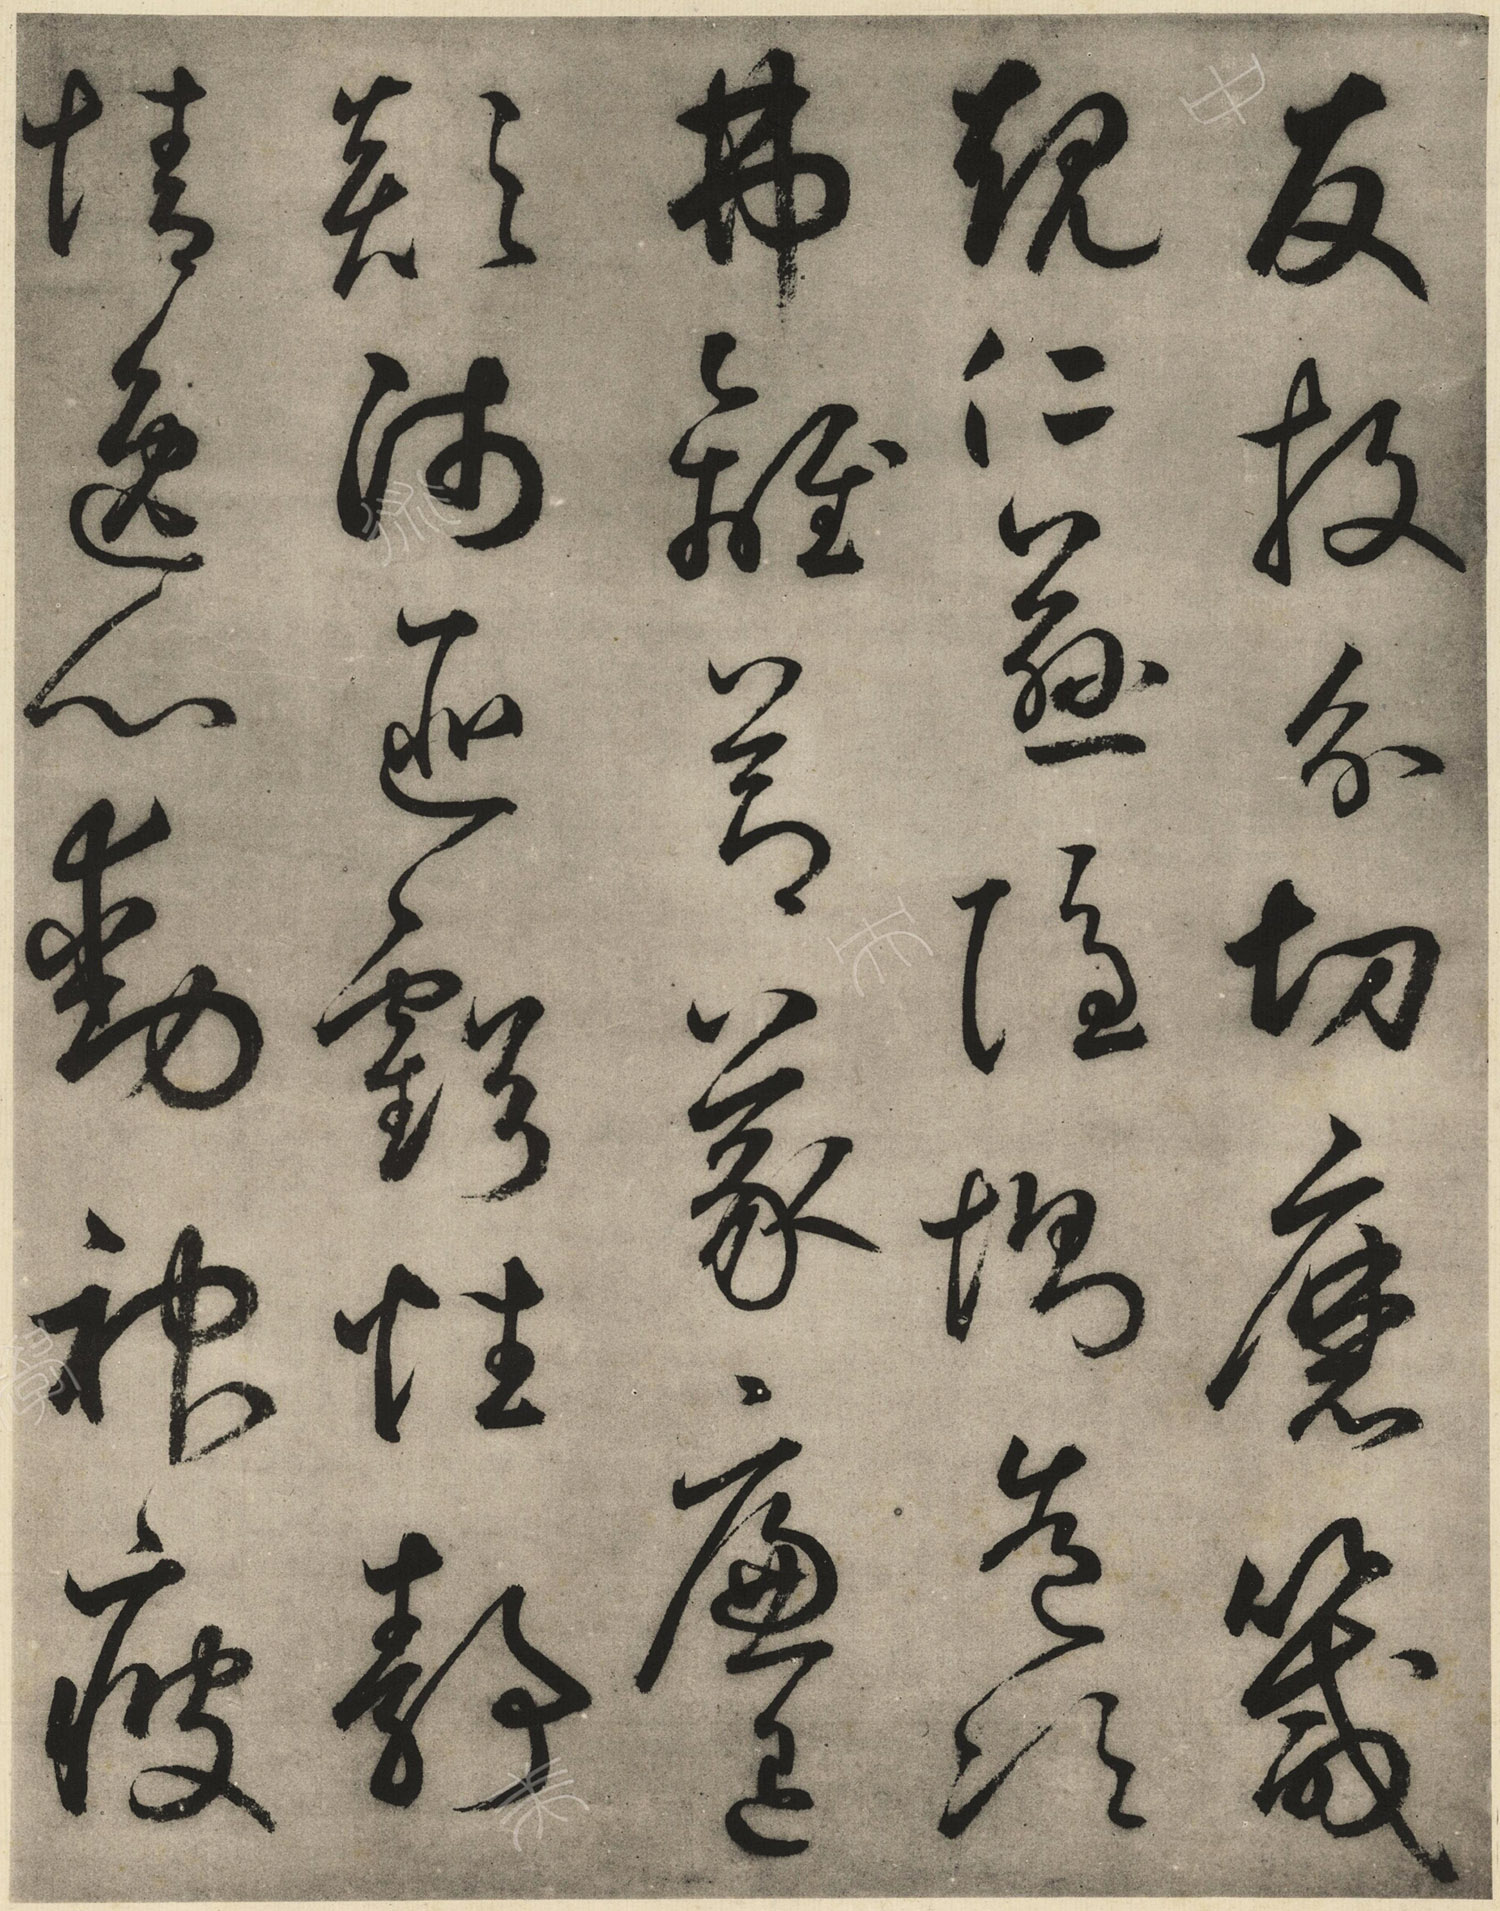 友投分切磨箴
規仁慈隱惻造次
弗離節義廉退
顛沛匪虧性靜
情逸心動神疲